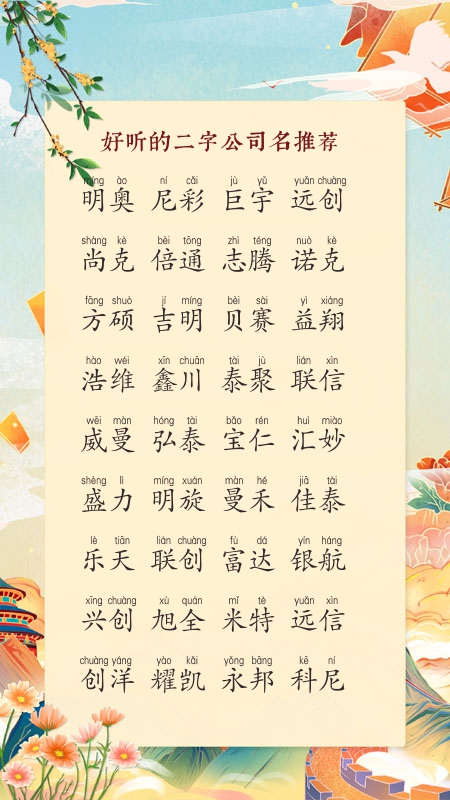 好听的二字公司名推荐
míng ào ní cǎi jù yǔ yuǎn chuàng
明奥 尼彩 巨宇 远创
shàng kè bèi tōng zhì téng nuò kè
尚克 倍通 志腾 诺克
fāng shuò jí míng bèi sài yì xiáng
方硕 吉明 贝赛 益翔
hào wéi xīn chuān tài jù lián xìn
浩维 鑫川 泰聚 联信
wēi màn hóng tài bǎo rén huì miào
威曼 弘泰 宝仁 汇妙
shèng lì míng xuán màn hé jiā tài
盛力 明旋 曼禾 佳泰
lè tiān lián chuàng fù dá yín háng
乐天 联创 富达 银航
xīng chuàng xù quán mǐ tè yuǎn xìn
兴创 旭全 米特 远信
chuàng yáng yào kǎi yǒng bāng kē ní
创洋 耀凯 永邦 科尼